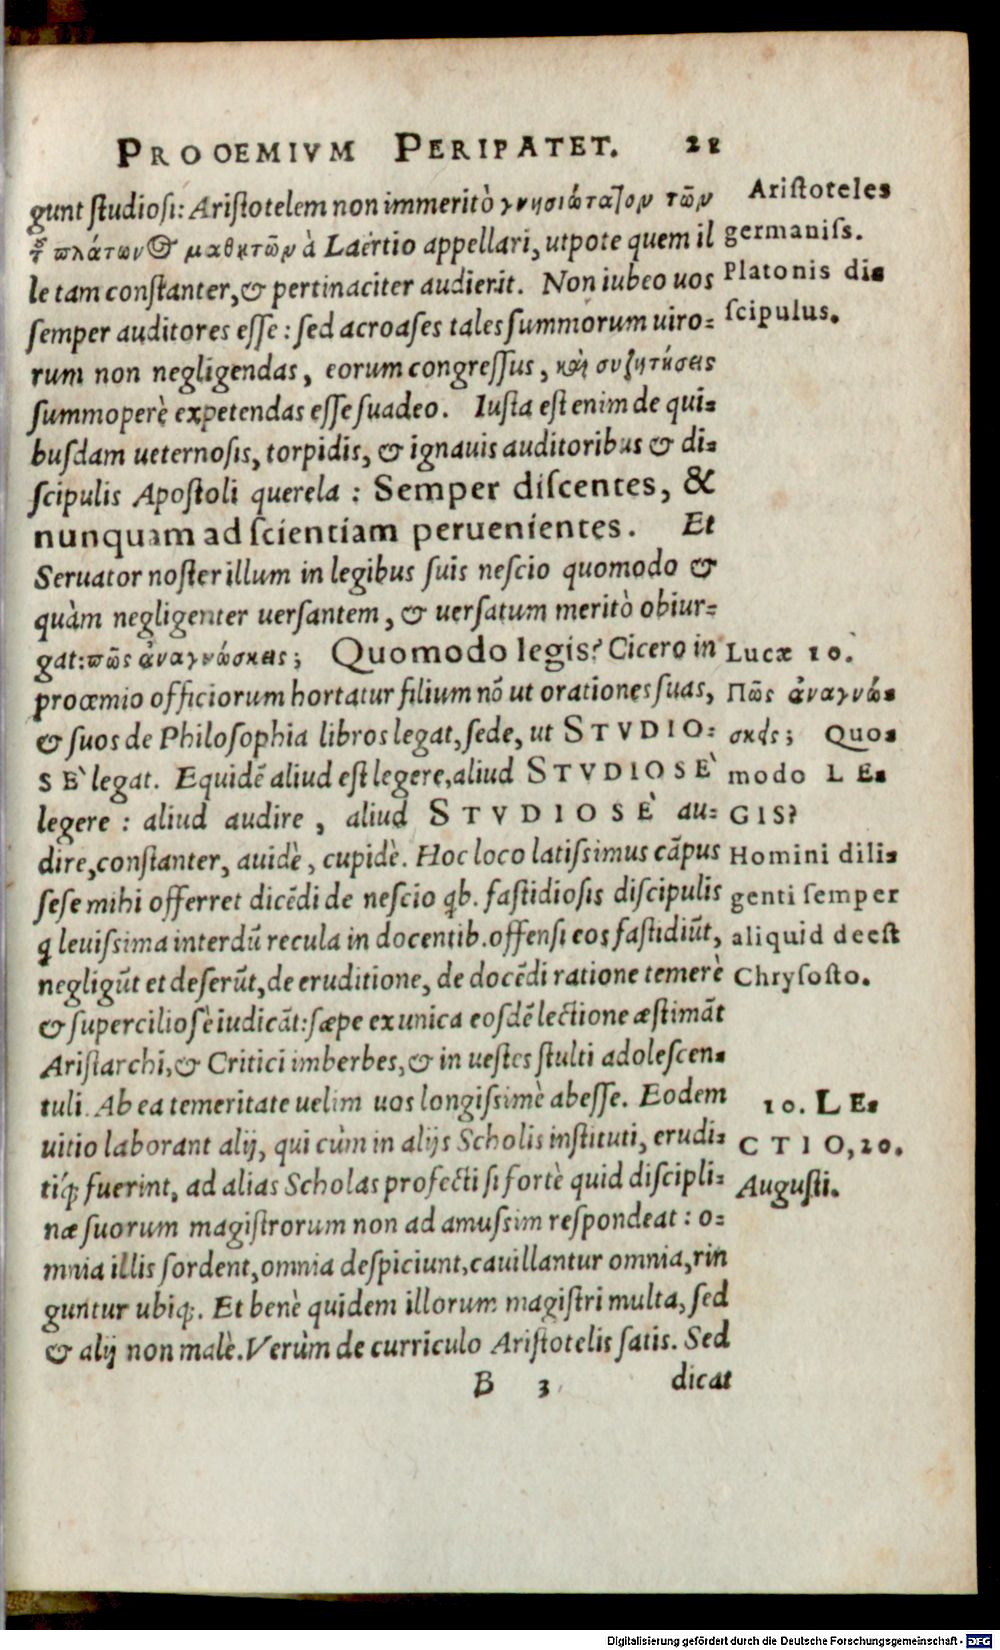 PROOEMIVM PERIPATET. 21
gunt ſtudioſi: Ariſtotelem non immeritò γνησιώτατον τῶν
τ͂ πλάτωνος μαθητῶν à Laërtio appellari, utpote quem il
le tam conſtanter, & pertinaciter audierit. Non iubeo uos
ſemper auditores eſſe: ſed acroaſes tales ſummorum uiro-
rum non negligendas, eorum congreſſus, καὶ συζητήσεις
ſummoperè expetendas eſſe ſuadeo. Iuſta eſt enim de qui-
buſdam ueternoſis, torpidis, & ignauis auditoribus & di-
ſcipulis Apoſtoli querela: Semper diſcentes, &
nunquam ad ſcientiam peruenientes. Et
Seruator noſter illum in legibus ſuis neſcio quomodo &
quàm negligenter uerſantem, & uerſatum meritò obiur-
gat: πῶς ἀναγνώσκεις; Quomodo legis? Cicero in
proœmio officiorum hortatur filium nō ut orationes ſuas,
& ſuos de Philoſophia libros legat, ſed e, ut STVDIO-
SÈ legat. Equidē aliud eſt legere, aliud STVDIOSÈ
legere: aliud audire, aliud STVDIOSÈ au-
dire, conſtanter, auidè, cupidè. Hoc loco latiſsimus cāpus
ſeſe mihi offerret dicēdi de neſcio qb. faſtidioſis diſcipulis
q leuiſsima interdū recula in docentib. offenſi eos faſtidiūt,
negligūt et deſerūt, de eruditione, de docēdi ratione temerè
& ſupercilioſè iudicāt: ſæpe ex unica eoſdē lectione æſtimāt
Ariſtarchi, & Critici imberbes, & in ueſtes ſtulti adoleſcen-
tuli. Ab ea temeritate uelim uos longiſsimè abeſſe. Eodem
uitio laborant alij, qui cùm in alijs Scholis inſtituti, erudi-
tiq; fuerint, ad alias Scholas profecti ſi fortè quid diſcipli-
næ ſuorum magiſtrorum non ad amuſsim reſpondeat: o-
mnia illis ſordent, omnia deſpiciunt, cauillantur omnia, rin
guntur ubiq;. Et benè quidem illorum magiſtri multa, ſed
& alij non malè. Verùm de curriculo Ariſtotelis ſatis. Sed
B 3 dicat
Ariſtoteles
germaniſs.
Platonis di-
ſcipulus.
Lucæ 10.
Πῶς ἀναγνώ-
σκεις; Quo-
modo LE-
GIS?
Homini dili-
genti ſemper
aliquid deeſt
Chryſoſto.
10. LE-
CTIO, 20.
Auguſti.
Digitalisierung gefördert durch die Deutsche Forschungsgemeinschaft - DFG